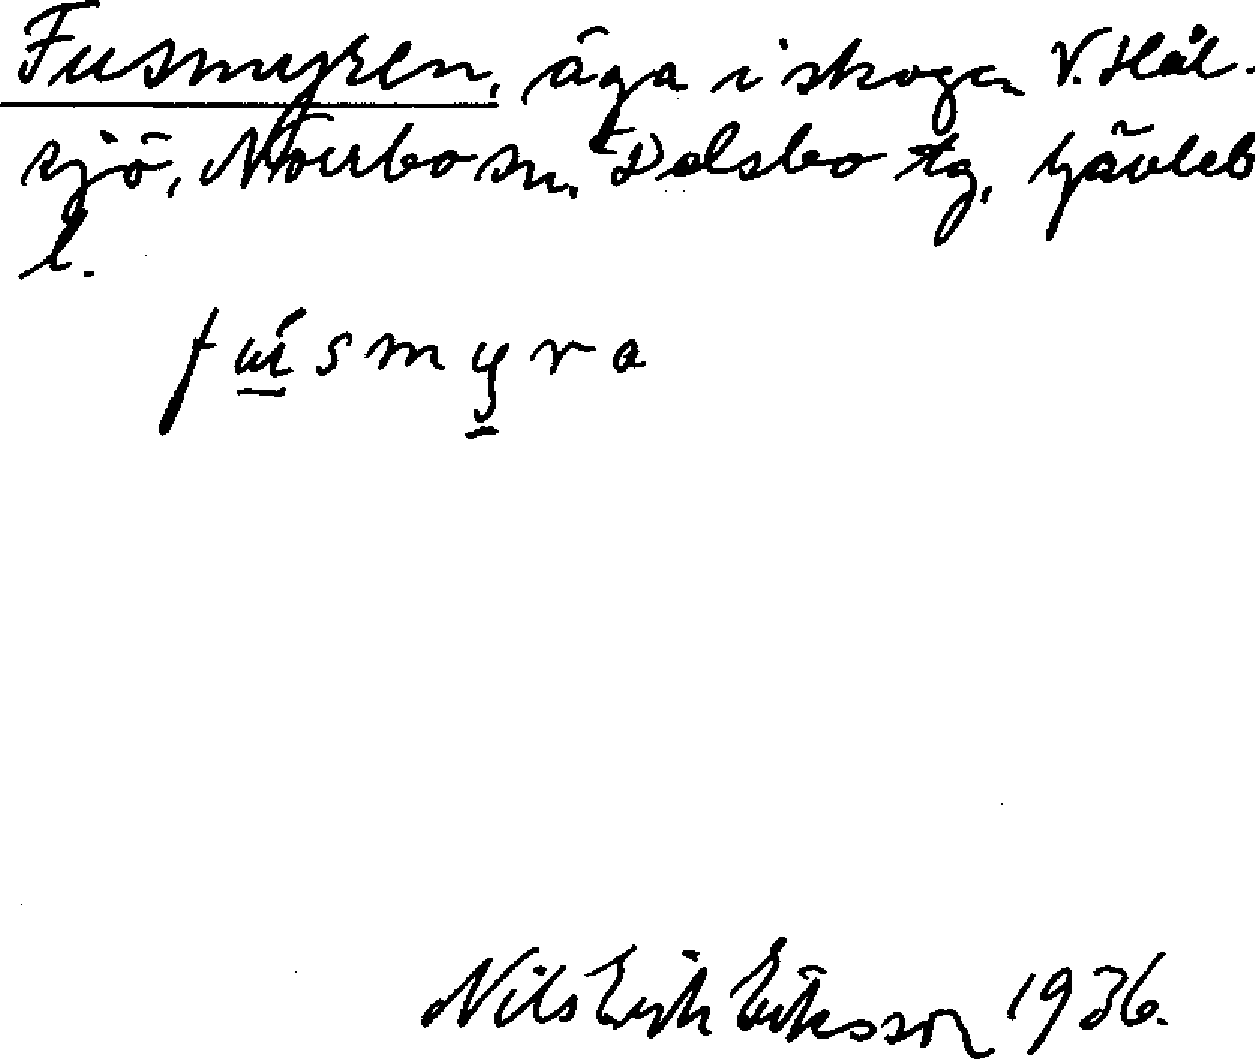 Fusmyren, äga i skogen V. Håls-
sjö, Norrbo sn. Delsbo tg, Gävleb
l.
fúsmyra
Nils Erik Eriksson 1936.